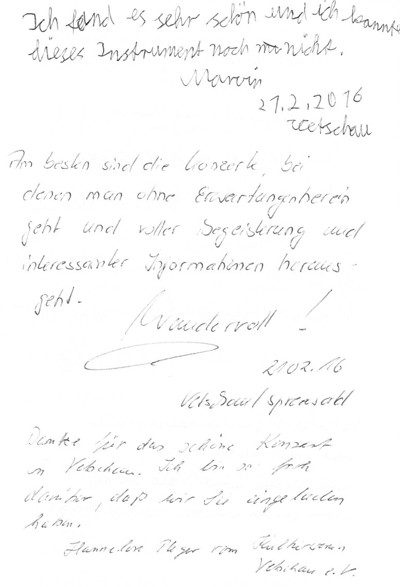 Ich fand es sehr schön und ich kannte
dieses Instrument noch nicht.
Marvin
21.2.2016
Vetschau
Am besten sind die Konzerte, bei
denen man ohne Erwartungen herein
geht und voller Begeisterung und
interessanter Informationen heraus-
geht.
Wundervoll!
21.02.16
Vetschau/Spreewald
Danke für das schöne Konzert
in Vetschau. Ich bin so froh
darüber, daß wir Sie eingeladen
haben.
Hannelore vom Kulturverein
Vetschau e.V.